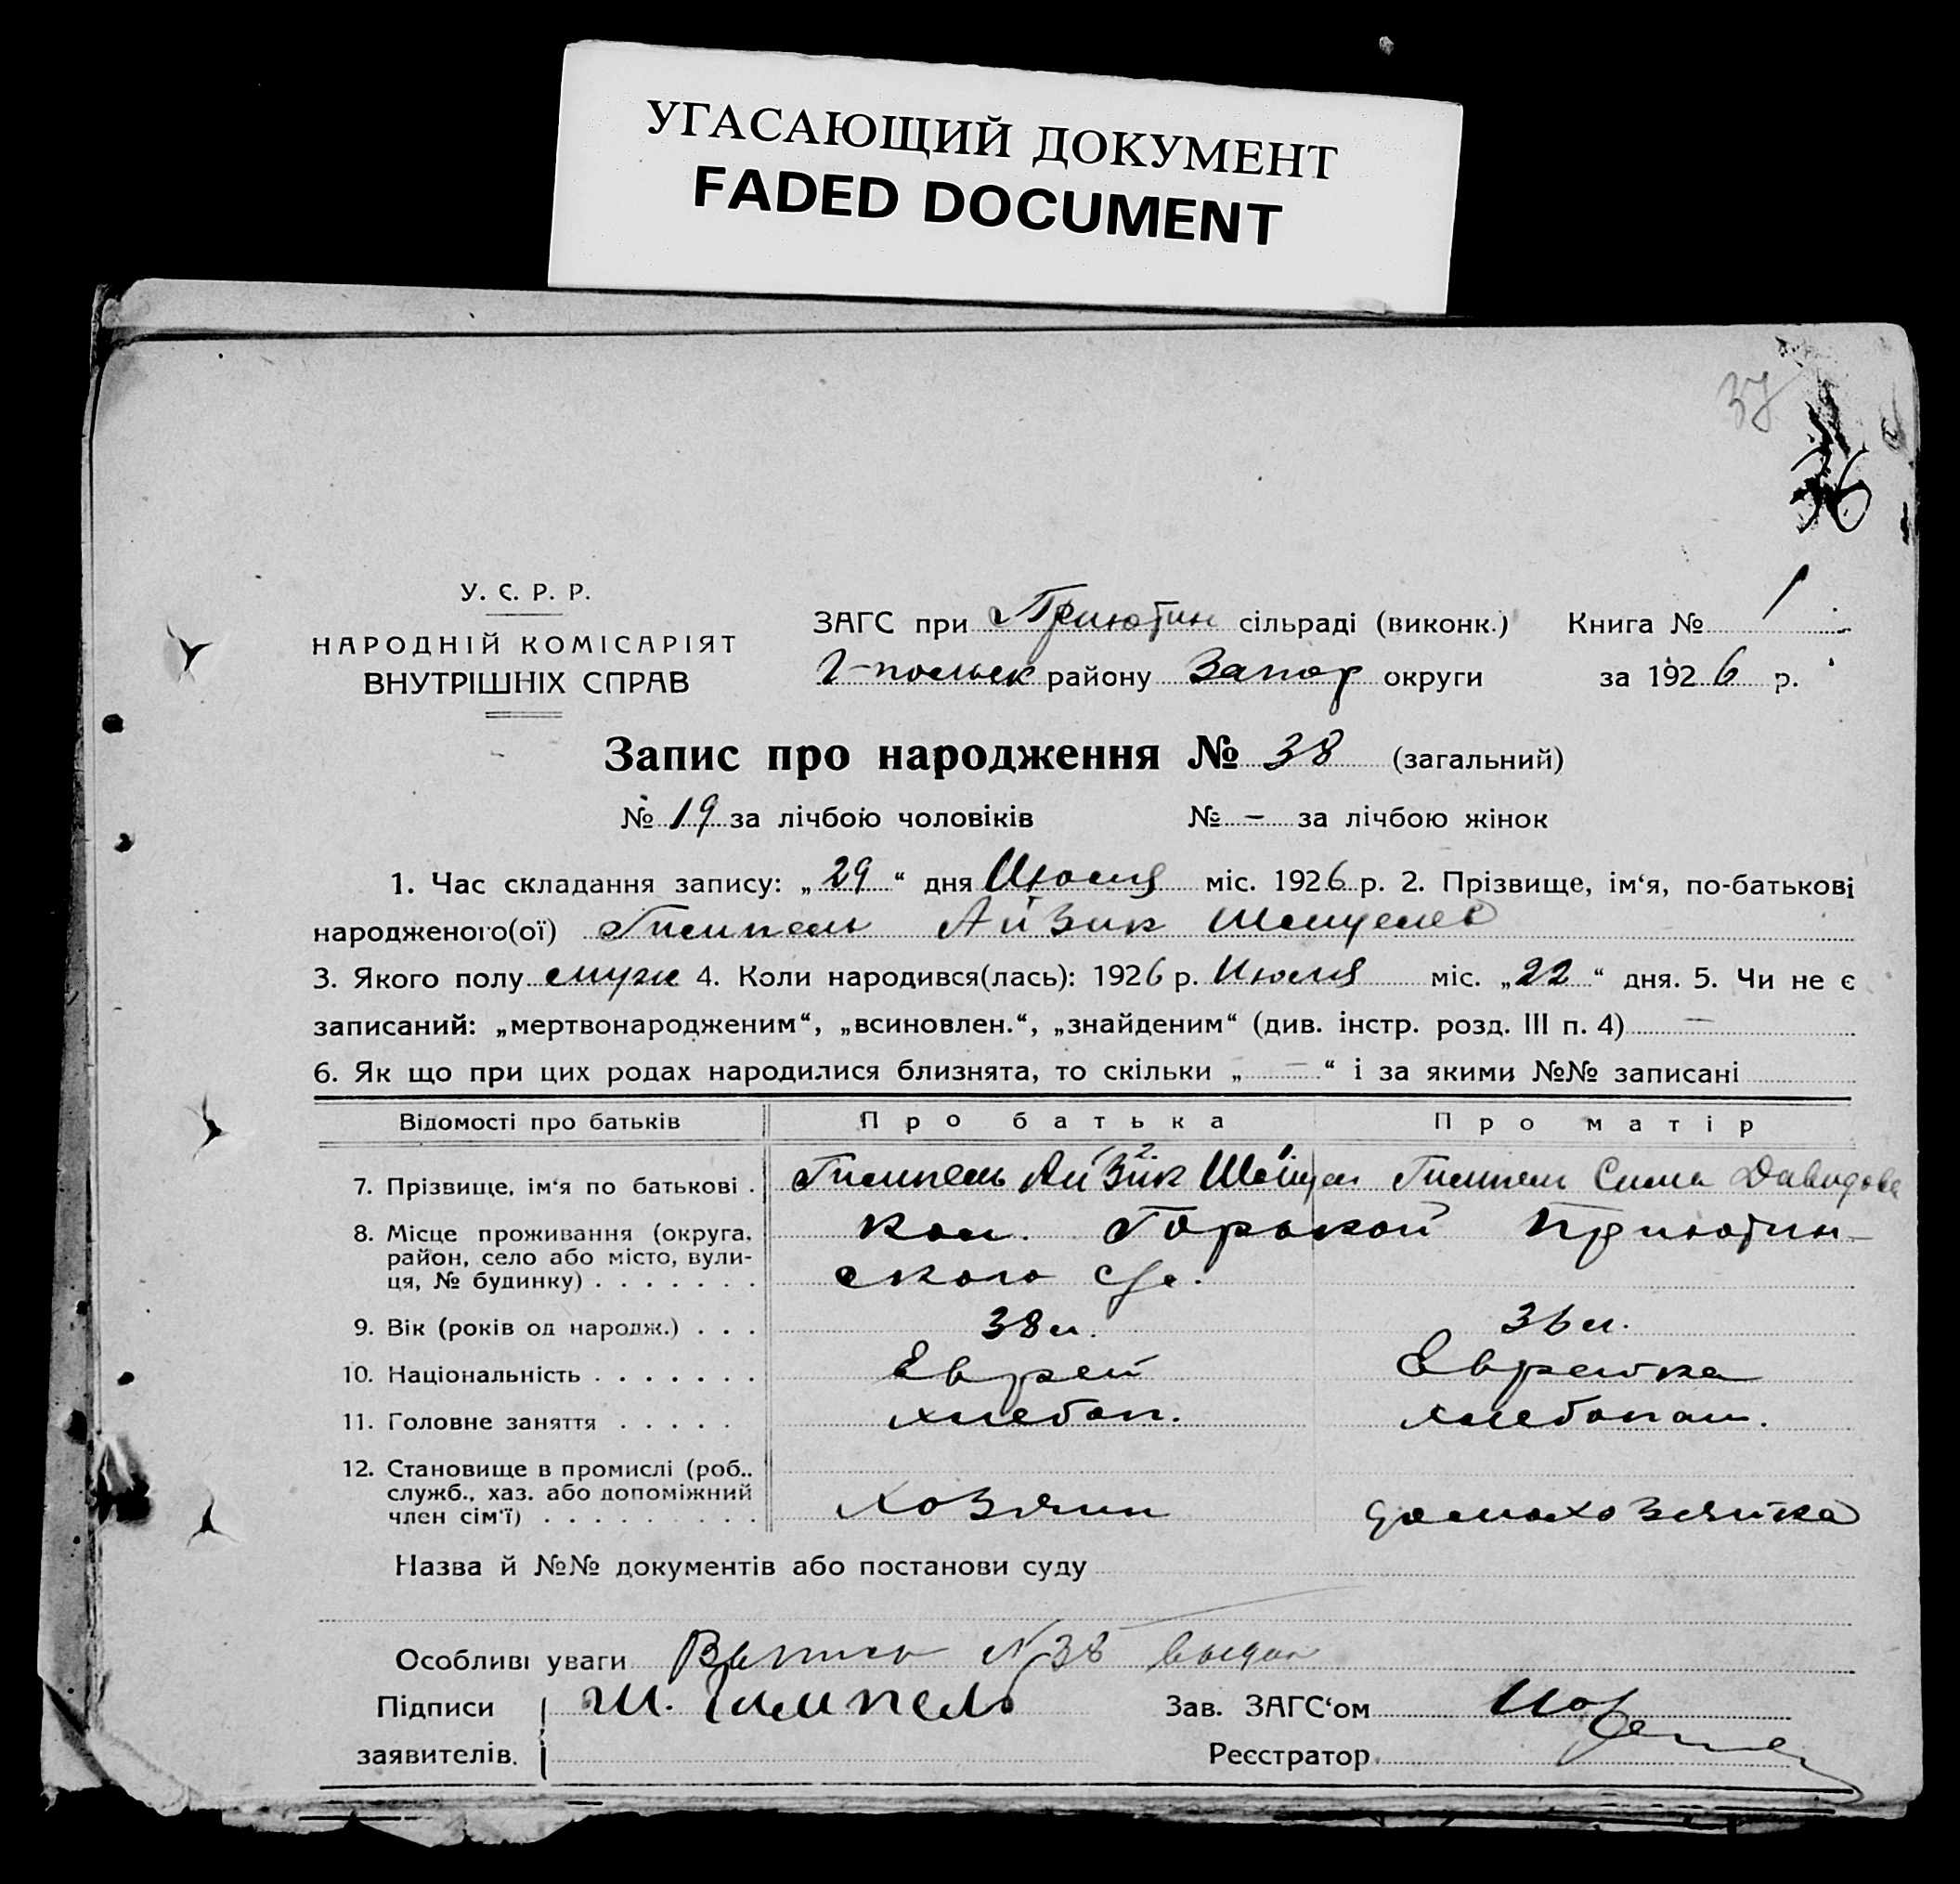 УГАСАЮЩИЙ ДОКУМЕНТ
FADED DOCUMENT
37
36
У. С. Р. Р.
НАРОДНІЙ КОМІСАРІЯТ
ВНУТРІШНІХ СПРАВ
ЗАГС при Приютин сільраді (виконк.) Книга № 1
Г-польск району Запор округи за 1926 р.
Запис про народження № 38 (загальний)
№ 19 за лічбою чоловіків № – за лічбою жінок
1. Час складання запису: „29“ дня Июля міс. 1926 р. 2. Прізвище, ім‘я, по-батькові
народженого(ої) Гимпель Айзик
3. Якого полу муж 4. Коли народився(лась): 1926 р. Июля міс. „22“ дня. 5. Чи не є
записаний: „мертвонародженим“, „всиновлен.“, „знайденим“ (див. інстр. розд. III п. 4) —
6. Як що при цих родах народилися близнята, то скільки „ – “ і за якими №№ записані
Відомості про батьків Про батька Про матір
7. Прізвище, ім‘я по батькові . Гимпель Айзик Гимпель Сима Давидова
8. Місце проживання (округа, район, село або місто, вули-ця, № будинку) . . . . . . . кол. Горькой Приютин-
ского с/с.
9. Вік (років од народж.) . . . 38 л. 36 л.
10. Національність . . . . . . . Еврей Еврейка
11. Головне заняття . . . . . хлебоп. хлебопаш.
12. Становище в промислі (роб., служб., хаз. або допоміжний член сім‘ї) . . . . . . . . . хозяин домохозяйка
Назва й №№ документів або постанови суду
Особливі уваги №38 выдан
Підписи Ш. Гимпель Зав. ЗАГС‘ом
заявителів. Реєстратор